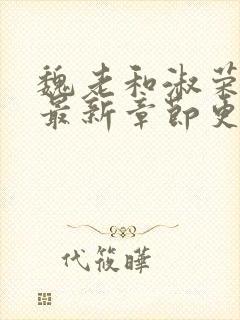 魏老和淑荣
最新章节更
代筱晔